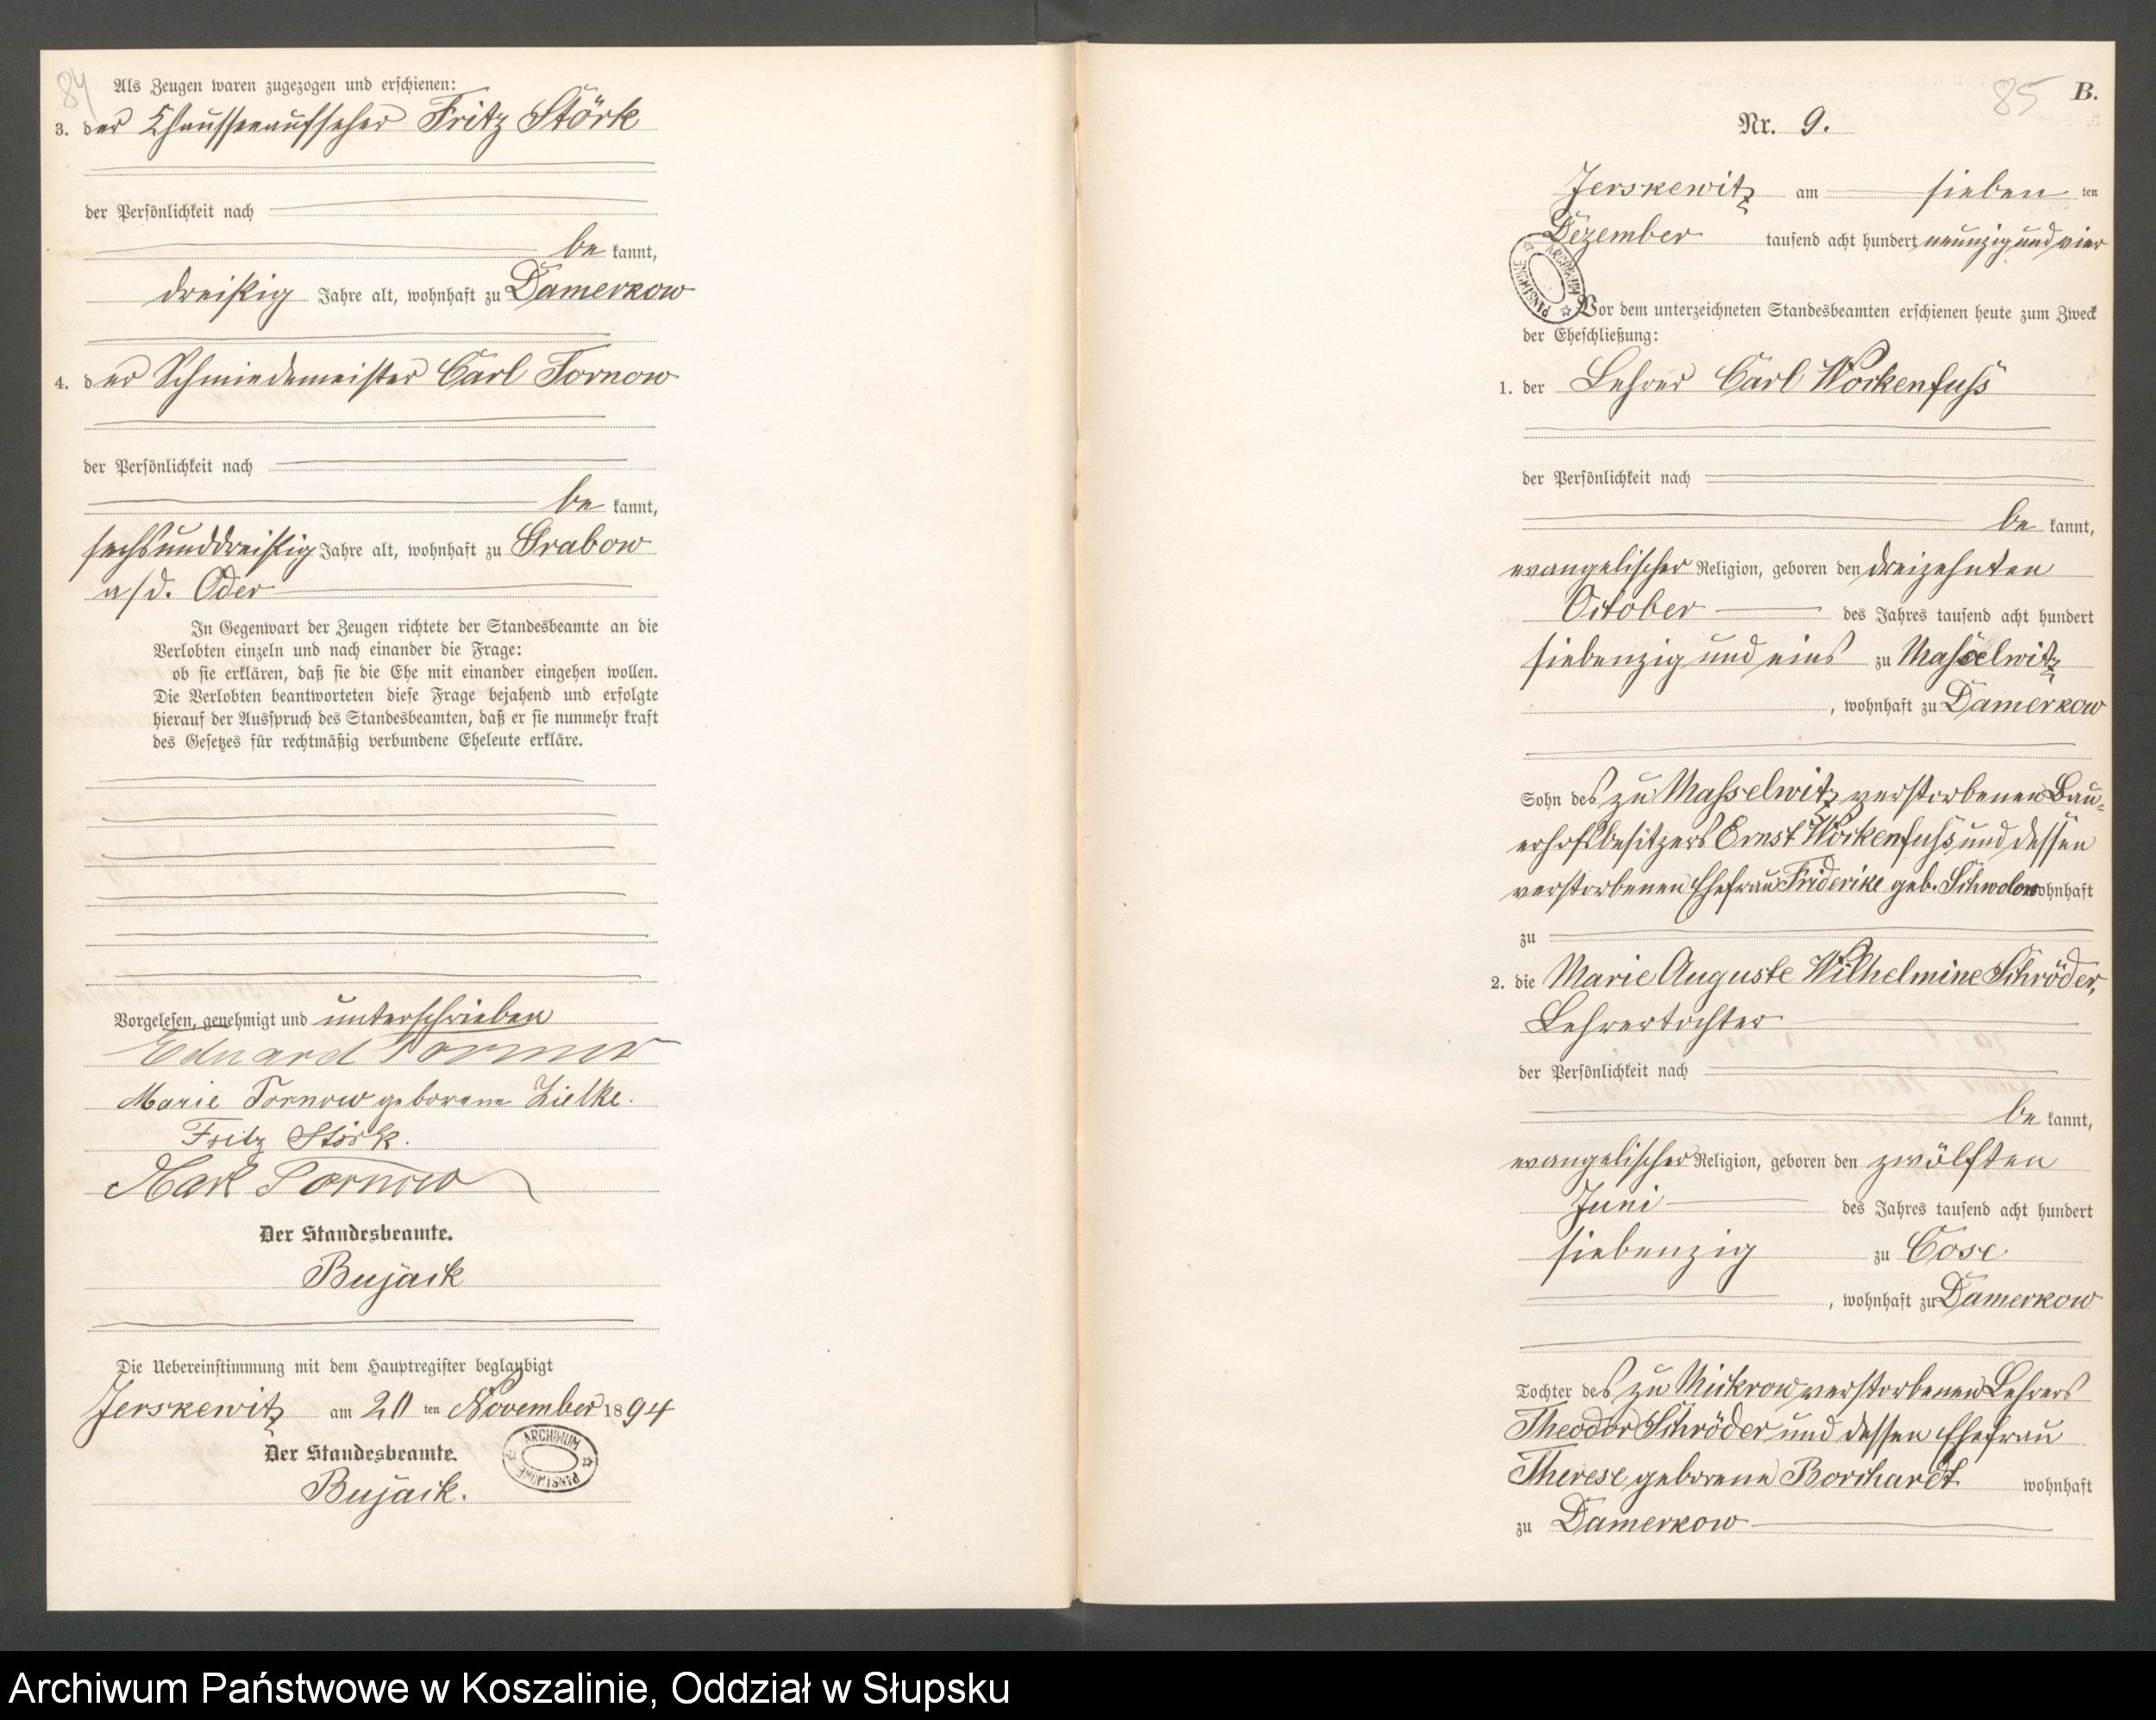 84
Als Zeugen waren zugezogen und erschienen:
3. der Chausseeaufseher Fritz Störk
der Persönlichkeit nach
be kannt,
dreißig Jahre alt, wohnhaft zu Damerkow
4. der Schmiedemeister Carl Tornow
der Persönlichkeit nach
be kannt,
sechsunddreißig Jahre alt, wohnhaft zu Grabow
a/d. Oder
In Gegenwart der Zeugen richtete der Standesbeamte an die
Verlobten einzeln und nach einander die Frage:
ob sie erklären, daß sie die Ehe mit einander eingehen wollen.
Die Verlobten beantworteten diese Frage bejahend und erfolgte
hierauf der Ausspruch des Standesbeamten, daß er sie nunmehr kraft
des Gesetzes für rechtmäßig verbundene Eheleute erkläre.
Vorgelesen, genehmigt und unterschrieben
Eduard Tornow
Marie Tornow geborene Zielke.
Fritz Störk.
Karl Tornow
Der Standesbeamte.
Bujack
Die Uebereinstimmung mit dem Hauptregister beglaubigt
Jerskewitz am 20 ten November 1894
Der Standesbeamte.
ARCHIWUM PAŃSTWOWE
Bujack.
85
B.
Nr. 9.
Jerskewitz am sieben ten
Dezember tausend acht hundert neunzig und vier
ARCHIWUM PAŃSTWOWE
Vor dem unterzeichneten Standesbeamten erschienen heute zum Zweck
der Eheschließung:
1. der Lehrer Carl Wockenfuß
der Persönlichkeit nach
be kannt,
evangelischer Religion, geboren den dreizehnten
October des Jahres tausend acht hundert
siebenzig und eins zu Masselwitz
, wohnhaft zu Damerkow
Sohn des zu Masselwitz verstorbenen Bau-
erhofsbesitzers Ernst Wockenfuß und dessen
verstorbenen Ehefrau Friderike geb. Schwolow wohnhaft
zu
2. die Marie Auguste Wilhelmine Schröder,
Lehrertochter
der Persönlichkeit nach
be kannt,
evangelischer Religion, geboren den zwölften
Juni des Jahres tausend acht hundert
siebenzig zu Cose
, wohnhaft zu Damerkow
Tochter des zu Mickrow verstorbenen Lehrers
Theodor Schröder und dessen Ehefrau
Therese geborene Borchardt wohnhaft
zu Damerkow
Archiwum Państwowe w Koszalinie, Oddział w Słupsku